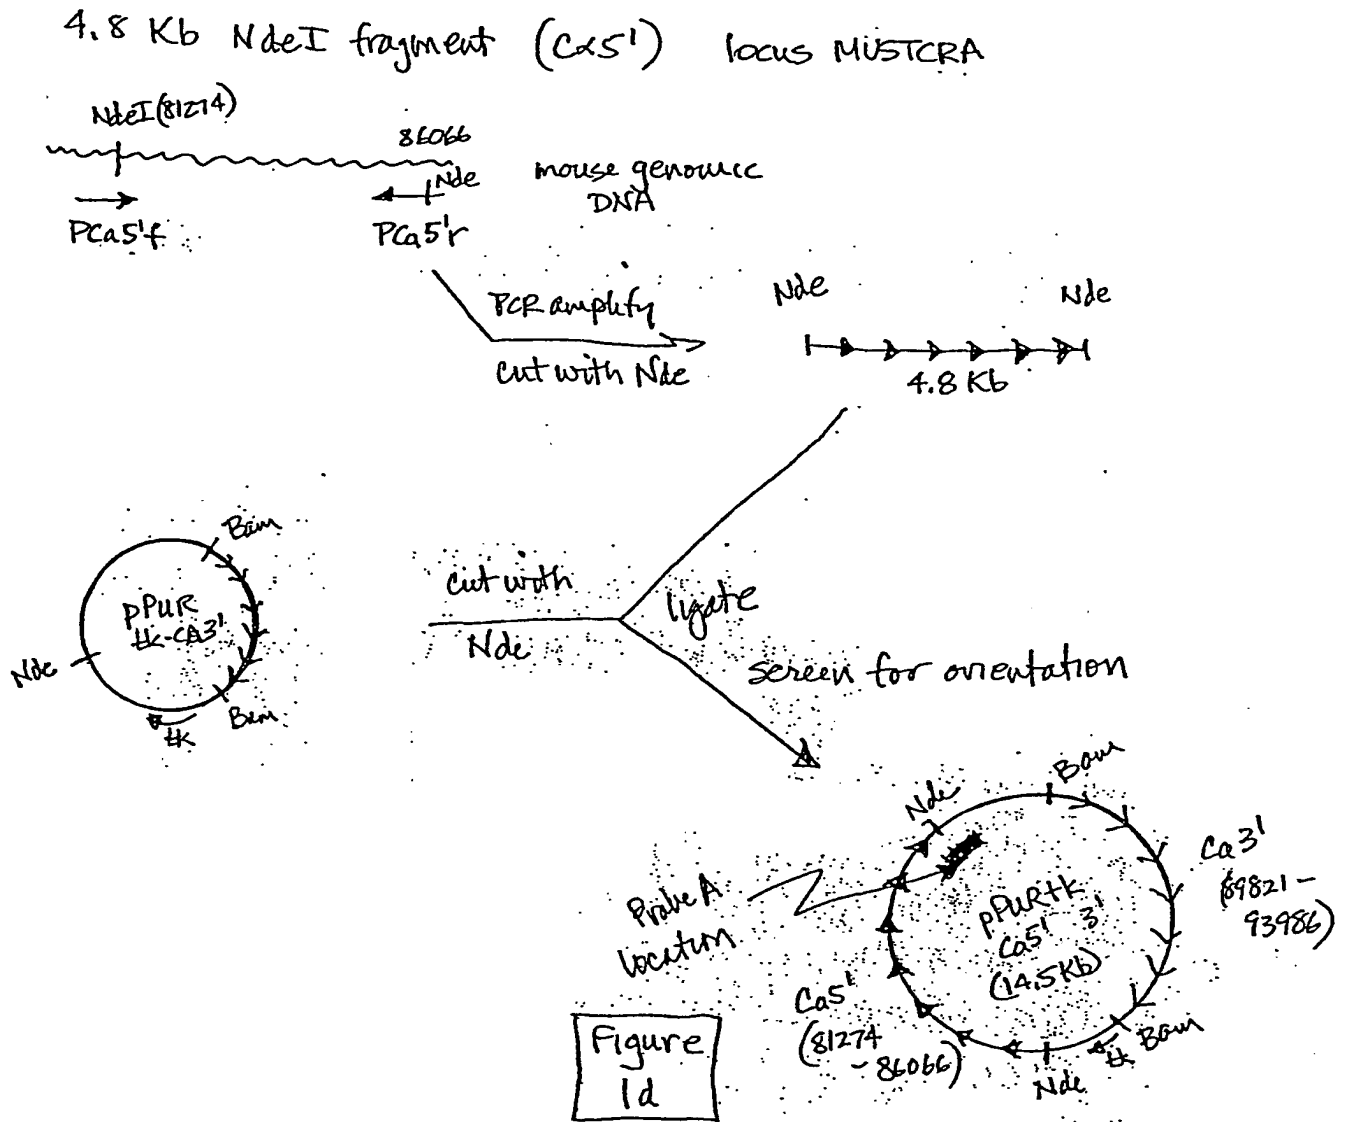 4.8 Kb NdeI fragment (Cα5') locus MUSTCRA
NdeI(81274)
86066
Nde
mouse genomic
DNA
PCa5'f
PCa5'r
PCR amplify
cut with Nde
Nde
Nde
4.8 Kb
Bam
pPUR
tk-CA3'
Nde
Bam
tk
cut with
Nde
ligate
screen for orientation
Nde
Bam
Ca3'
(89821 -
93986)
Probe A
location
pPURtk
Ca5' 3'
(14.5Kb)
Ca5'
(81274
- 86066)
Bam
tk
Nde
Figure
1d